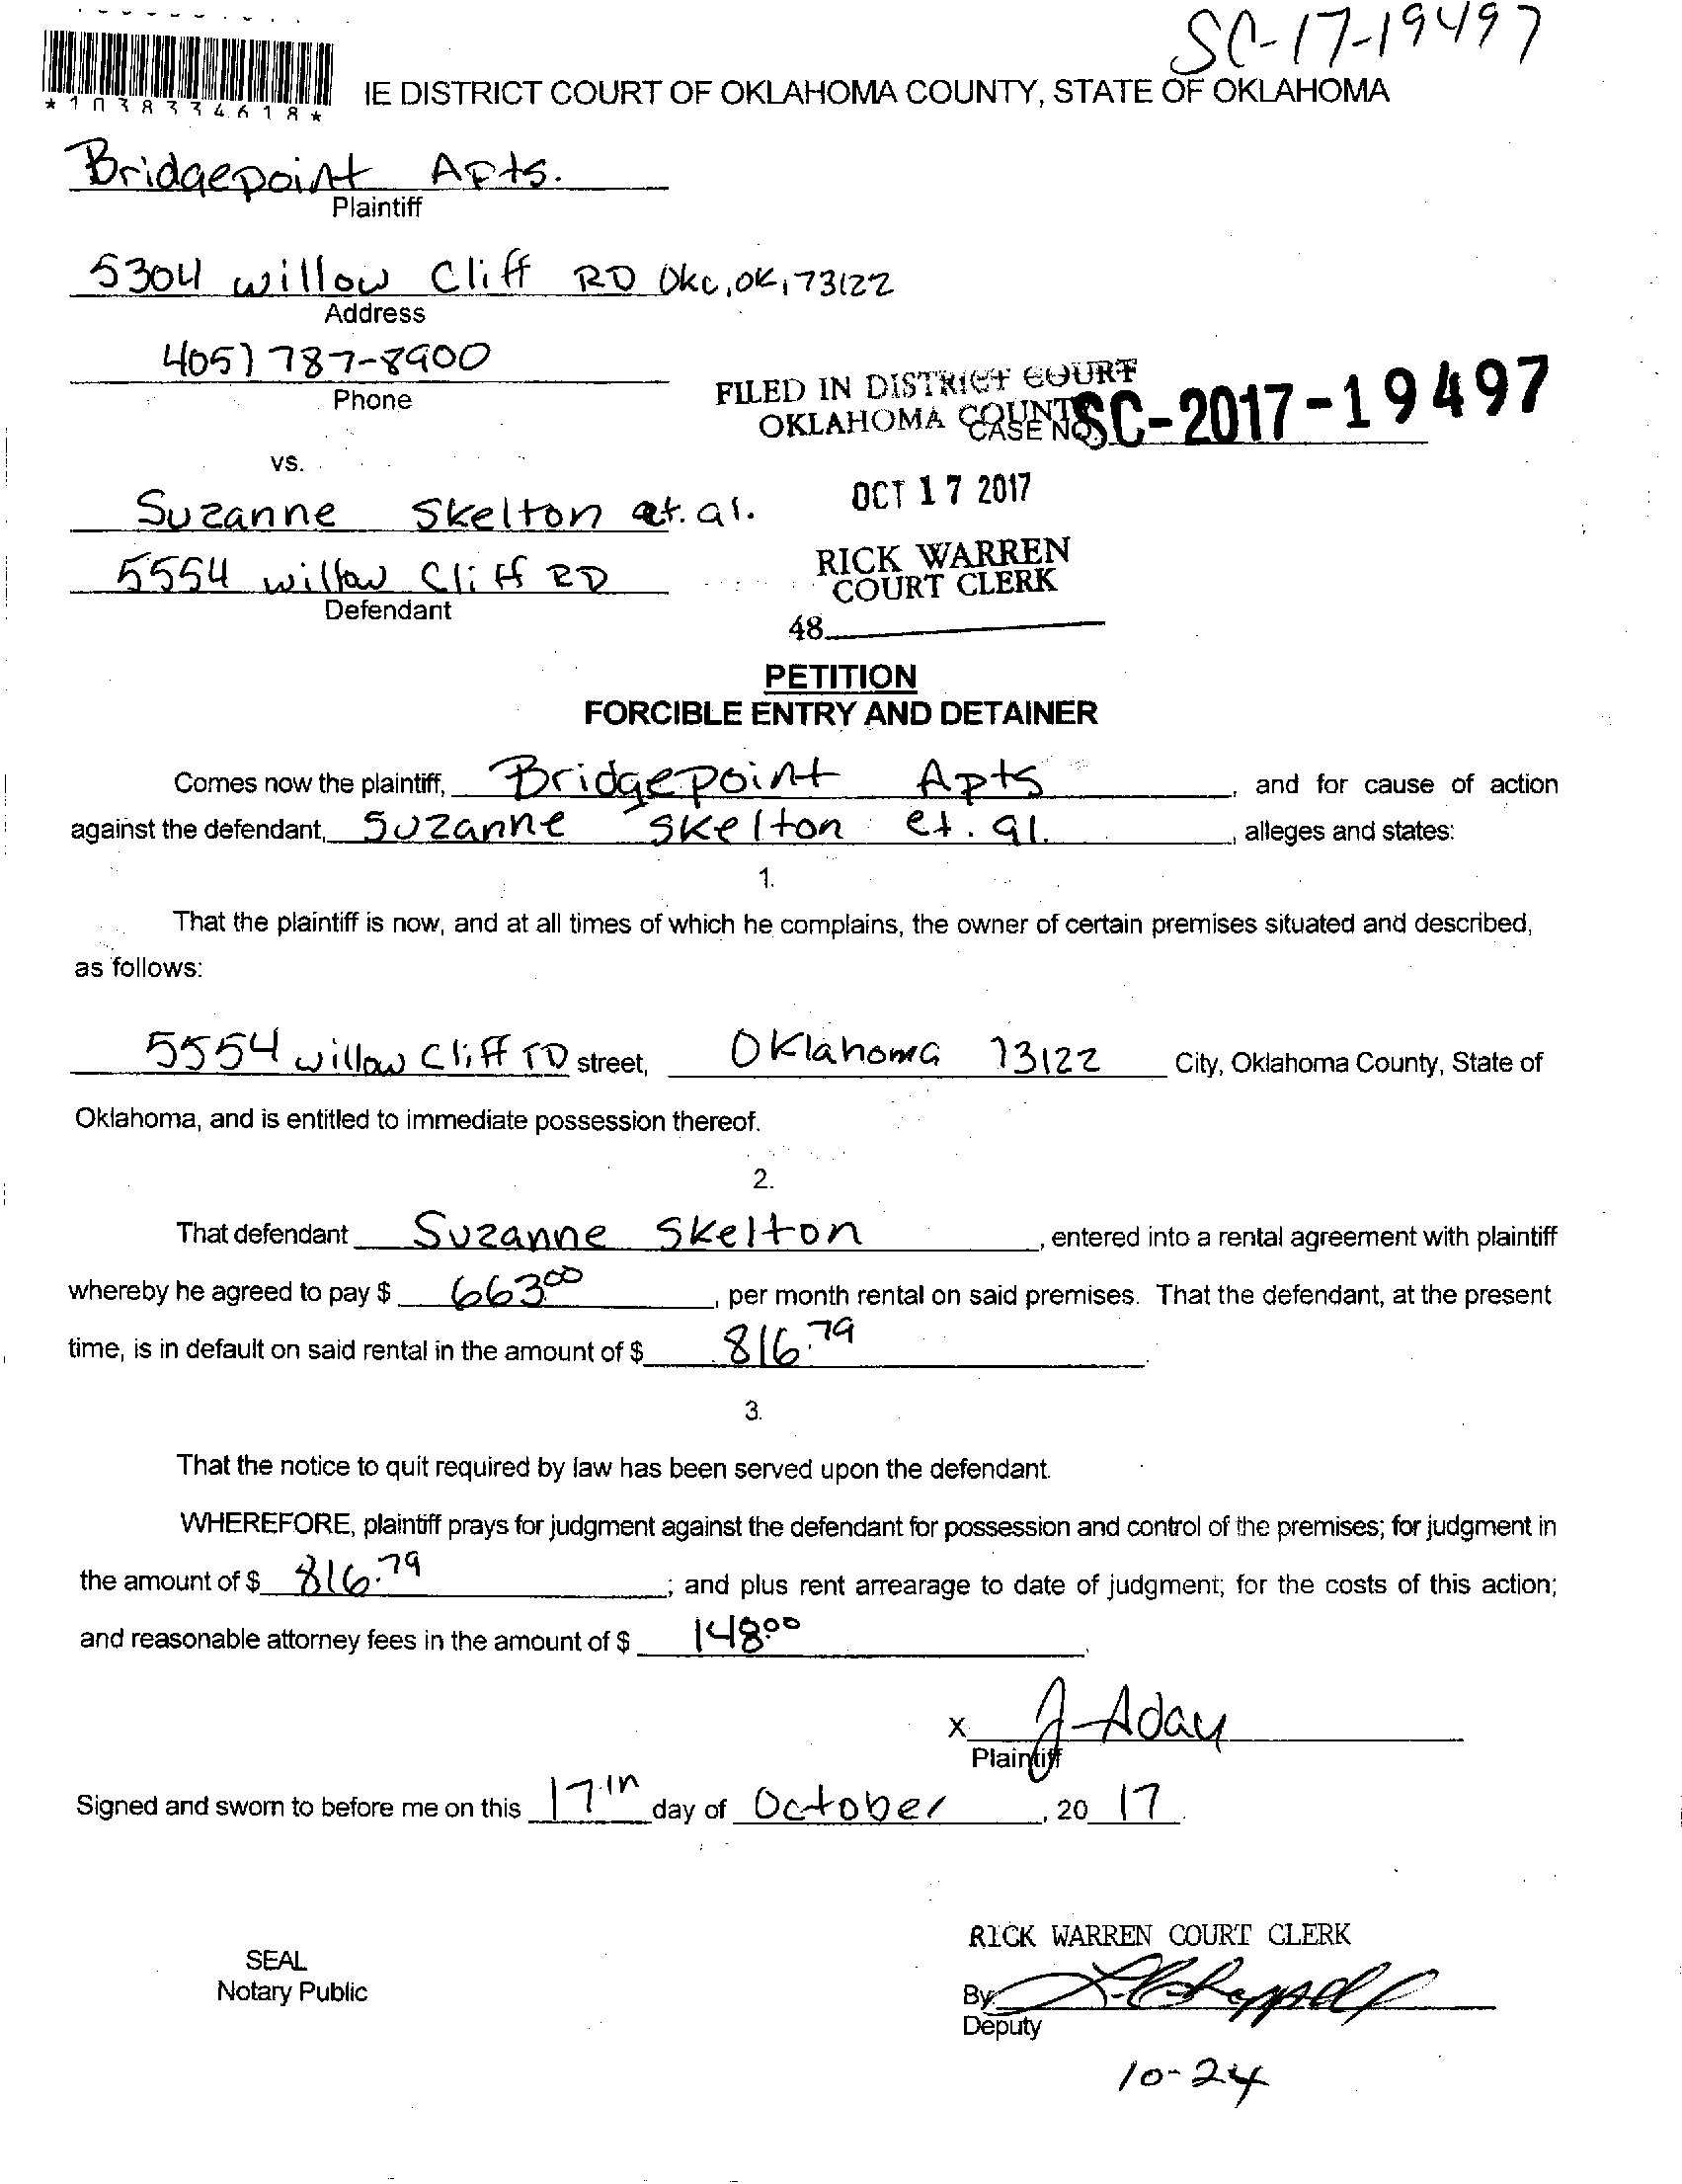 SC-17-19497
*1038334618*
IE DISTRICT COURT OF OKLAHOMA COUNTY, STATE OF OKLAHOMA
Bridgepoint Apts.
Plaintiff
5304 Willow Cliff RD Okc, OK, 73122
Address
405) 787-8900
Phone
FILED IN DISTRICT COURT
OKLAHOMA COUNTY
CASE NO. SC-2017-19497
vs.
OCT 17 2017
Suzanne Skelton et. al.
RICK WARREN
COURT CLERK
5554 willow Cliff RD
Defendant
48
PETITION
FORCIBLE ENTRY AND DETAINER
Comes now the plaintiff, Bridgepoint Apts, and for cause of action
against the defendant, Suzanne Skelton et. al., alleges and states:
1.
That the plaintiff is now, and at all times of which he complains, the owner of certain premises situated and described,
as follows:
5554 willow Cliff rD street, Oklahoma 73122 City, Oklahoma County, State of
Oklahoma, and is entitled to immediate possession thereof.
2.
That defendant Suzanne Skelton, entered into a rental agreement with plaintiff
whereby he agreed to pay $ 663.00, per month rental on said premises. That the defendant, at the present
time, is in default on said rental in the amount of $ 816.79.
3.
That the notice to quit required by law has been served upon the defendant.
WHEREFORE, plaintiff prays for judgment against the defendant for possession and control of the premises; for judgment in
the amount of $ 816.79; and plus rent arrearage to date of judgment; for the costs of this action;
and reasonable attorney fees in the amount of $ 148.00.
x J Aday
Plaintiff
Signed and sworn to before me on this 17th day of October, 20 17.
RICK WARREN COURT CLERK
SEAL
Notary Public
By
Deputy
10-24